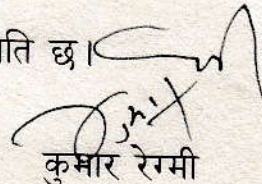 ति छ।
कुमार रेग्मी